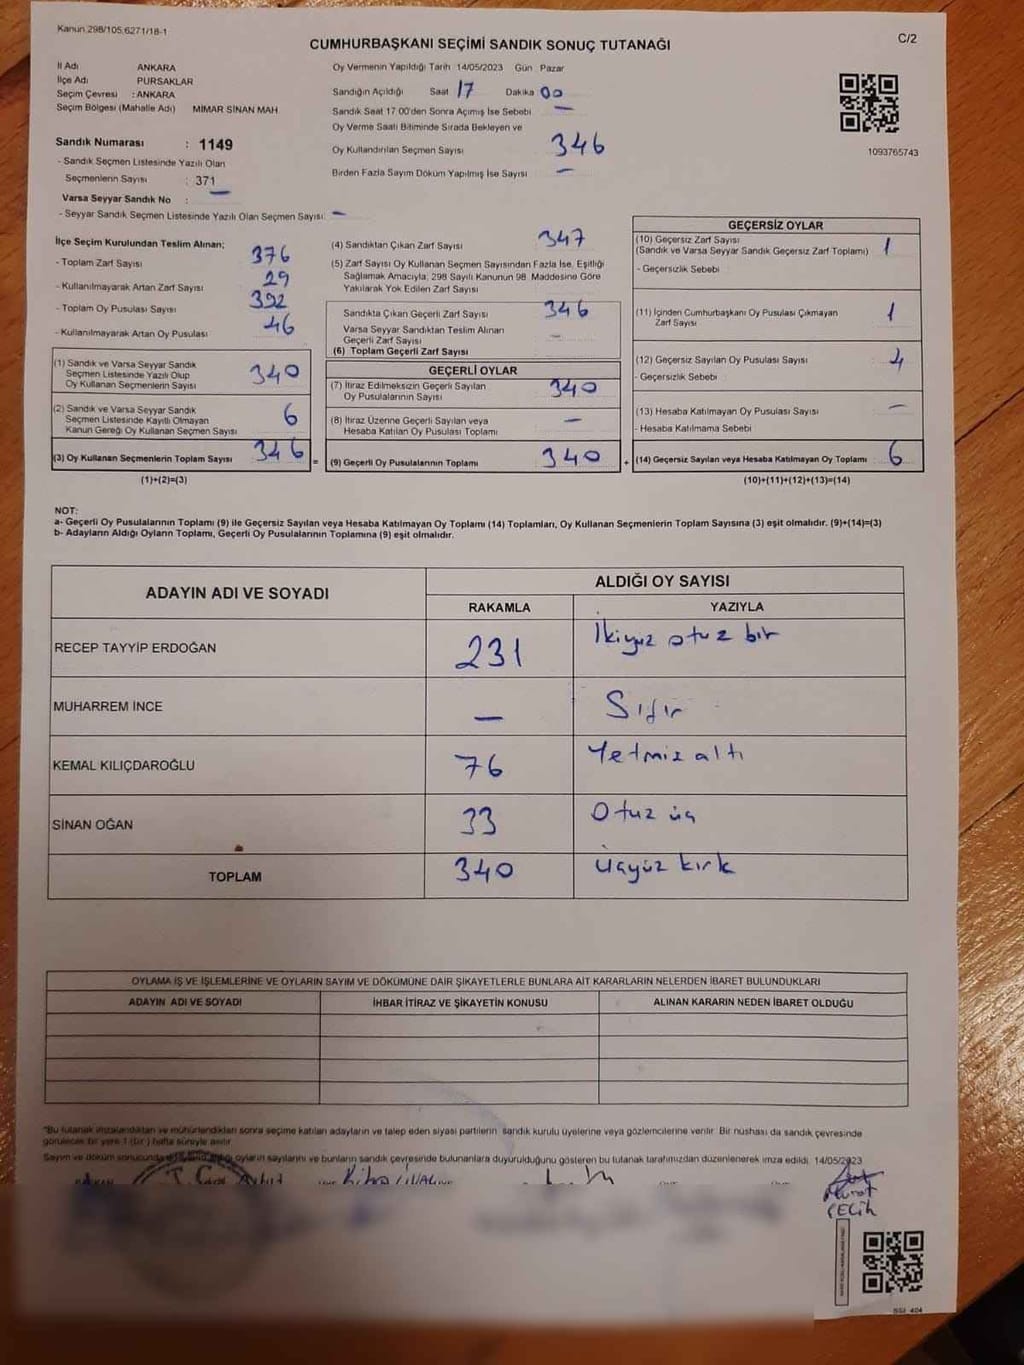 Kanun 298/105,6271/18-1
C/2
CUMHURBAŞKANI SEÇİMİ SANDIK SONUÇ TUTANAĞI
İl Adı ANKARA
İlçe Adı PURSAKLAR
Seçim Çevresi : ANKARA
Seçim Bölgesi (Mahalle Adı) MIMAR SİNAN MAH
Sandık Numarası : 1149
- Sandık Seçmen Listesinde Yazılı Olan
Seçmenlerin Sayısı : 371
Varsa Seyyar Sandık No : —
- Seyyar Sandık Seçmen Listesinde Yazılı Olan Seçmen Sayısı: —
Oy Vermenin Yapıldığı Tarih 14/05/2023 Gün Pazar
Sandığın Açıldığı Saat 17 Dakika 00
Sandık Saat 17.00'den Sonra Açımış İse Sebebi —
Oy Verme Saati Bitiminde Sırada Bekleyen ve
Oy Kullandırılan Seçmen Sayısı 346
Birden Fazla Sayım Döküm Yapılmış İse Sayısı —
1093765743
İlçe Seçim Kurulundan Teslim Alınan;
- Toplam Zarf Sayısı 376
- Kullanılmayarak Artan Zarf Sayısı 29
- Toplam Oy Pusulası Sayısı 392
- Kullanılmayarak Artan Oy Pusulası 46
(1) Sandık ve Varsa Seyyar Sandık
Seçmen Listesinde Yazılı Olup
Oy Kullanan Seçmenlerin Sayısı 340
(2) Sandık ve Varsa Seyyar Sandık
Seçmen Listesinde Kayıtlı Olmayan
Kanun Gereği Oy Kullanan Seçmen Sayısı 6
(3) Oy Kullanan Seçmenlerin Toplam Sayısı 346
(1)+(2)=(3)
(4) Sandıktan Çıkan Zarf Sayısı 347
(5) Zarf Sayısı Oy Kullanan Seçmen Sayısından Fazla İse, Eşitliği
Sağlamak Amacıyla, 298 Sayılı Kanunun 98. Maddesine Göre
Yakılarak Yok Edilen Zarf Sayısı
Sandıkta Çıkan Geçerli Zarf Sayısı 346
Varsa Seyyar Sandıktan Teslim Alınan
Geçerli Zarf Sayısı —
(6) Toplam Geçerli Zarf Sayısı
GEÇERLİ OYLAR
(7) İtiraz Edilmeksizin Geçerli Sayılan
Oy Pusulalarının Sayısı 340
(8) İtiraz Üzerine Geçerli Sayılan veya
Hesaba Katılan Oy Pusulası Toplamı —
= (9) Geçerli Oy Pusulalarının Toplamı 340
GEÇERSİZ OYLAR
(10) Geçersiz Zarf Sayısı 1
(Sandık ve Varsa Seyyar Sandık Geçersiz Zarf Toplamı)
- Geçersizlik Sebebi
(11) İçinden Cumhurbaşkanı Oy Pusulası Çıkmayan
Zarf Sayısı 1
(12) Geçersiz Sayılan Oy Pusulası Sayısı 4
- Geçersizlik Sebebi
(13) Hesaba Katılmayan Oy Pusulası Sayısı —
- Hesaba Katılmama Sebebi
+ (14) Geçersiz Sayılan veya Hesaba Katılmayan Oy Toplamı 6
(10)+(11)+(12)+(13)=(14)
NOT:
a- Geçerli Oy Pusulalarının Toplamı (9) ile Geçersiz Sayılan veya Hesaba Katılmayan Oy Toplamı (14) Toplamları, Oy Kullanan Seçmenlerin Toplam Sayısına (3) eşit olmalıdır. (9)+(14)=(3)
b- Adayların Aldığı Oyların Toplamı, Geçerli Oy Pusulalarının Toplamına (9) eşit olmalıdır.
ADAYIN ADI VE SOYADI ALDIĞI OY SAYISI
RAKAMLA YAZIYLA
RECEP TAYYİP ERDOĞAN 231 İkiyüz otuz bir
MUHARREM İNCE — Sıfır
KEMAL KILIÇDAROĞLU 76 Yetmiz altı
SİNAN OĞAN 33 Otuz üç
TOPLAM 340 Üçyüz kırk
OYLAMA İŞ VE İŞLEMLERİNE VE OYLARIN SAYIM VE DÖKÜMÜNE DAİR ŞİKAYETLERLE BUNLARA AİT KARARLARIN NELERDEN İBARET BULUNDUKLARI
ADAYIN ADI VE SOYADI İHBAR İTİRAZ VE ŞİKAYETİN KONUSU ALINAN KARARIN NEDEN İBARET OLDUĞU
"Bu tutanak imzalandıktan ve mühürlendikten sonra seçime katılan adayların ve talep eden siyasi partilerin sandık kurulu üyelerine veya gözlemcilerine verilir. Bir nüshası da sandık çevresinde
görülecek bir yere 1 (bir) hafta süreyle asılır.
Sayım ve döküm sonucunda oyların sayılarını ve bunların sandık çevresinde bulunanlara duyurulduğunu gösteren bu tutanak tarafımızdan düzenlenerek imza edildi. 14/05/2023
T.C.
Murat
ÇELİK